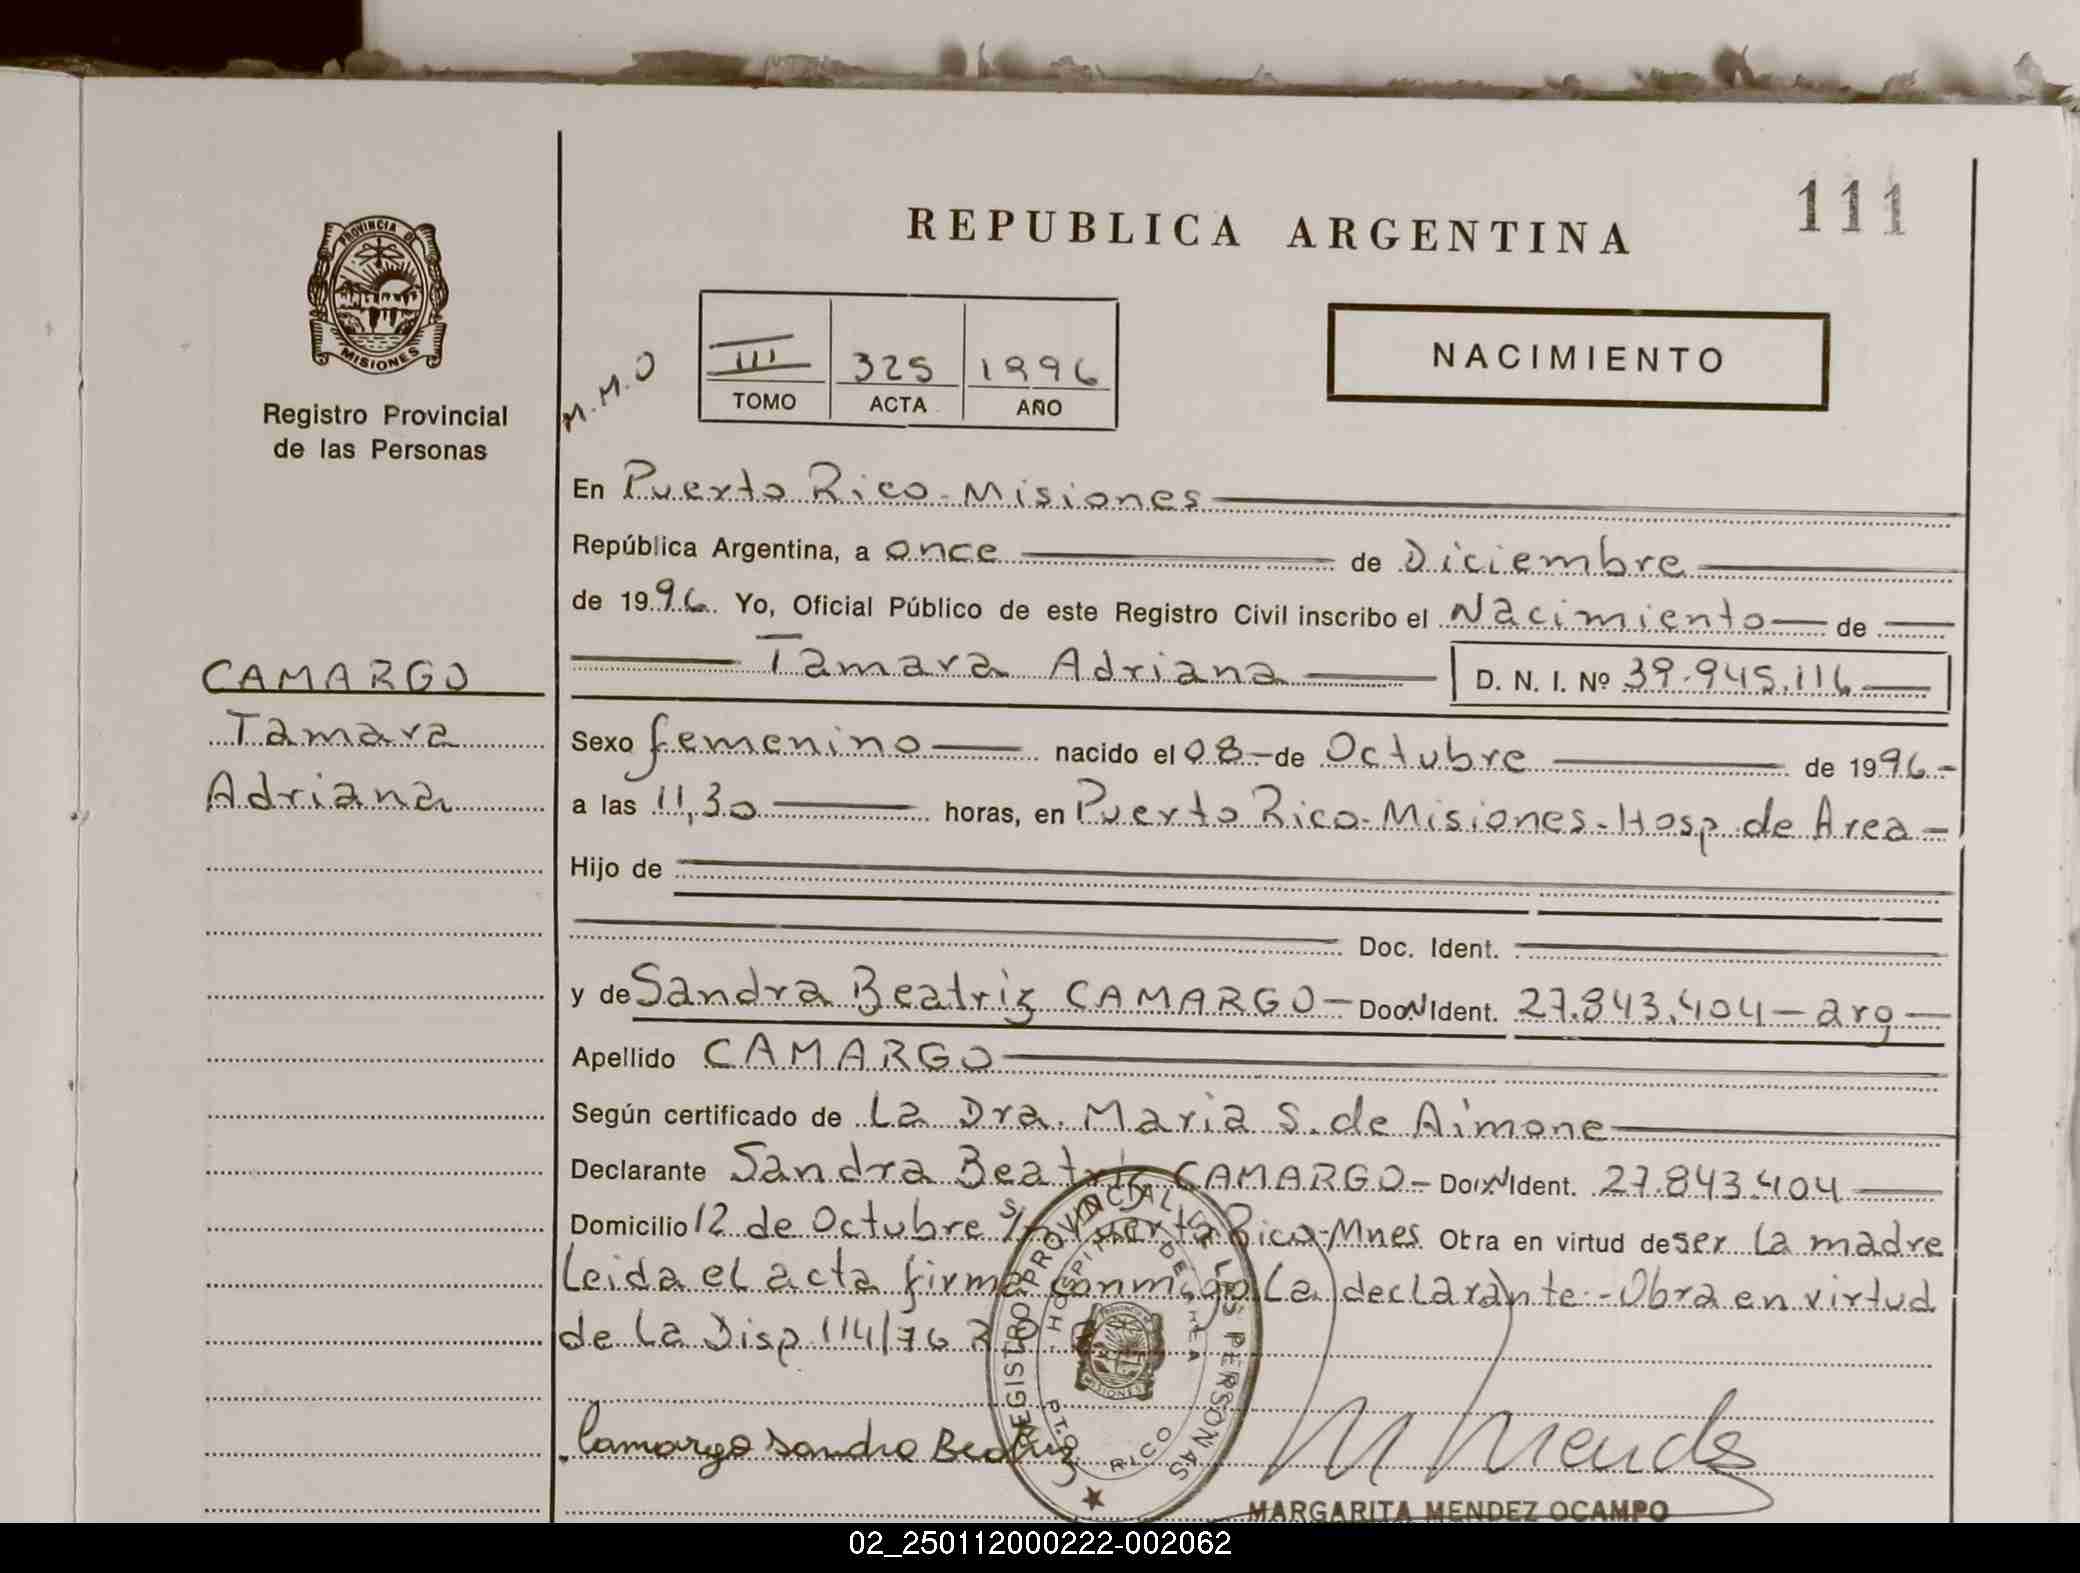 111
REPUBLICA ARGENTINA
PROVINCIA DE
MISIONES
Registro Provincial
de las Personas
NACIMIENTO
M.M.O
III 325 1996
TOMO ACTA AÑO
En Puerto Rico-Misiones
República Argentina, a once de Diciembre
de 1996. Yo, Oficial Público de este Registro Civil inscribo el Nacimiento de
Tamara Adriana D. N. I. Nº 39.945.116
CAMARGO
Tamara
Adriana
Sexo femenino nacido el 08-de Octubre de 1996-
a las 11,30 horas, en Puerto Rico-Misiones-Hosp de Area-
Hijo de
Doc. Ident.
y de Sandra Beatriz CAMARGO- Ident. 27.843.404-arg
Apellido CAMARGO
Según certificado de La Dra. Maria S. de Aimone
Declarante Sandra Beatriz CAMARGO- Ident. 27.843.404
Domicilio 12 de Octubre s/n Puerto Rico-Mnes. Obra en virtud de ser La madre
Leida el acta firma conmigo La declarante-Obra en virtud
de La Disp 114/76
REGISTRO PROVINCIAL DE LAS PERSONAS
HOSPITAL DE AREA
PTO. RICO
PROVINCIA DE
MISIONES
Camargo Sandra Beatriz
M Mendez
MARGARITA MENDEZ OCAMPO
02_250112000222-002062